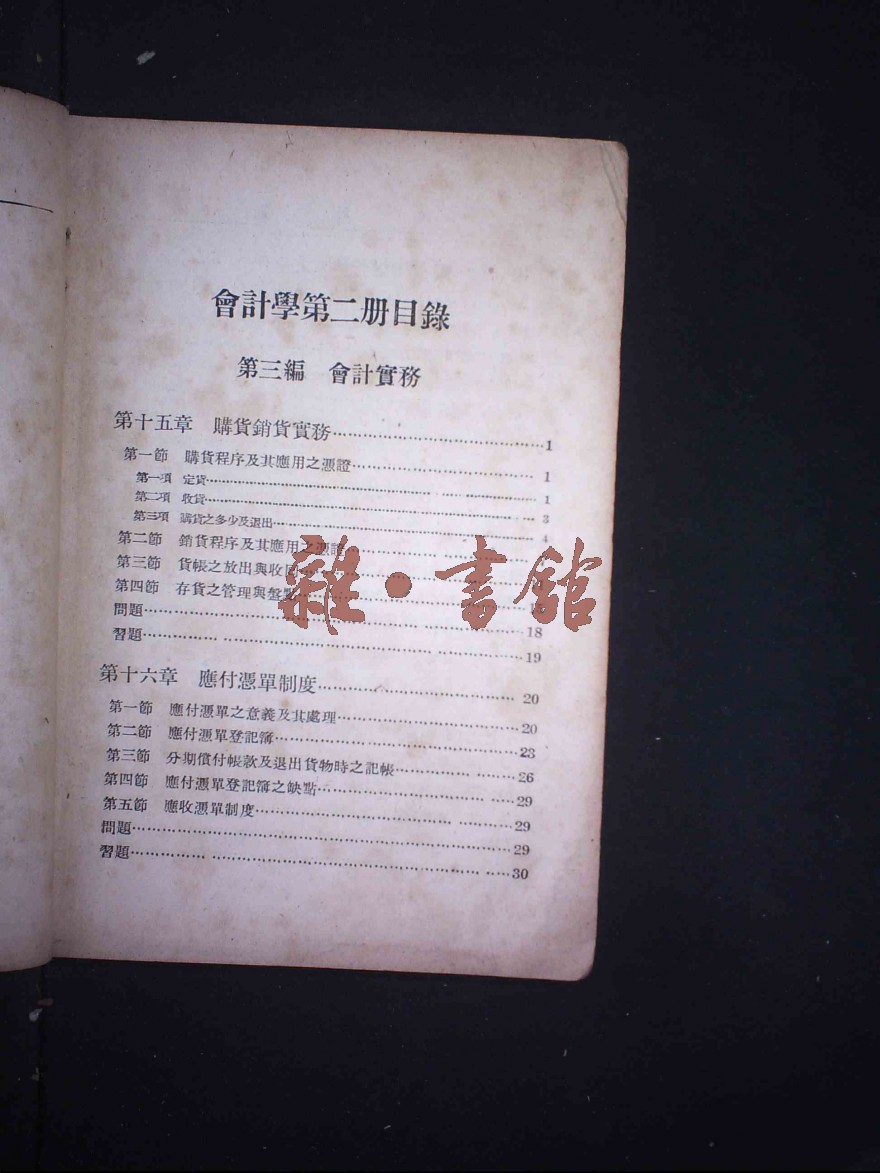 會計學第二册目錄
第三編 會計實務
第十五章 購貨銷貨實務……1
第一節 購貨程序及其應用之憑證……1
第一項 定貨……1
第二項 收貨……3
第三項 購貨之多少及退出……4
第二節 銷貨程序及其應用之憑證……
第三節 貨帳之放出與收回……
第四節 存貨之管理與盤點……
問題……18
習題……19
第十六章 應付憑單制度……20
第一節 應付憑單之意義及其處理……20
第二節 應付憑單登記簿……23
第三節 分期償付帳款及退出貨物時之記帳……26
第四節 應付憑單登記簿之缺點……29
第五節 應收憑單制度……29
問題……29
習題……30
雜·書館